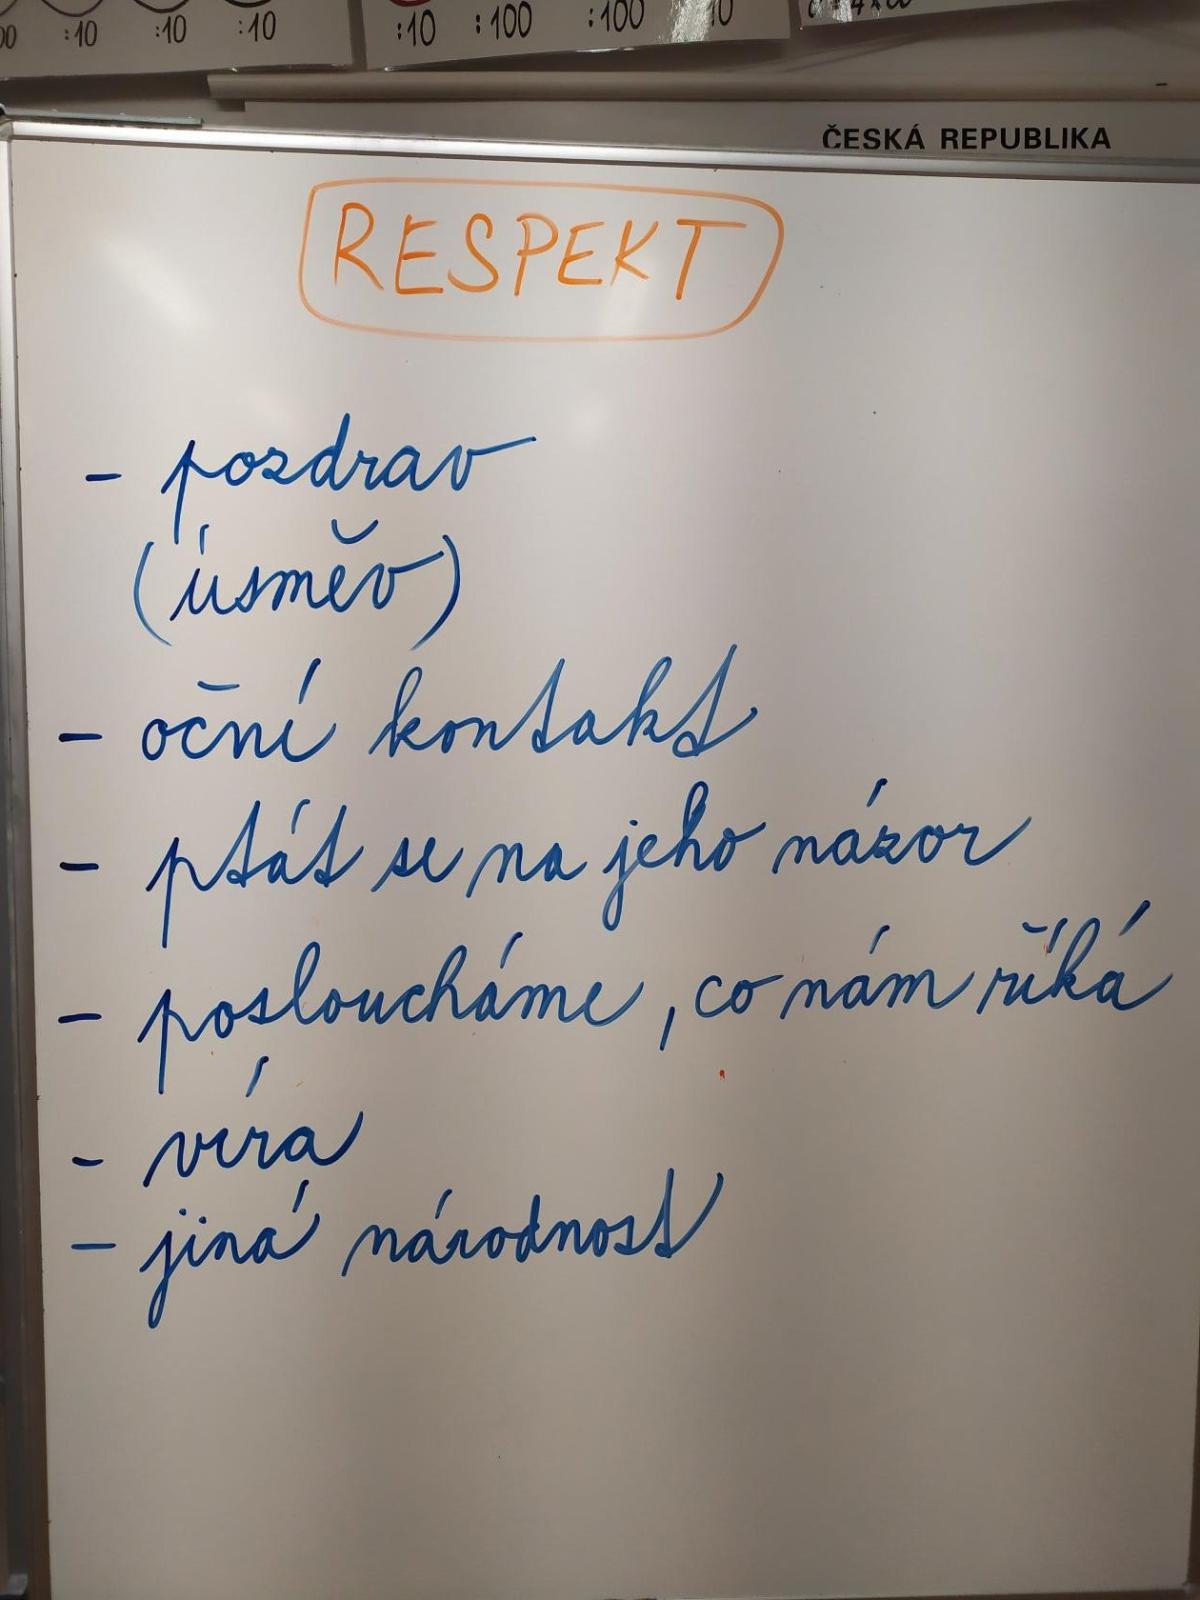 :10 :10 :10 :10 :100 :100
ČESKÁ REPUBLIKA
RESPEKT
- pozdrav
(úsměv)
- oční kontakt
- ptát se na jeho názor
- posloucháme, co nám říká
- víra
- jiná národnost